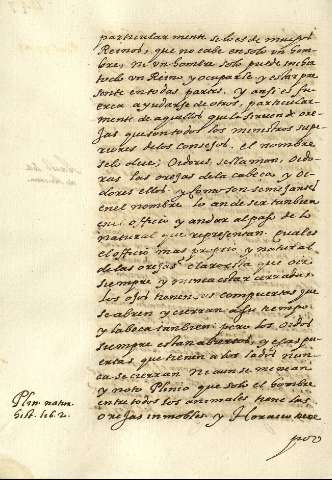 particularmente si lo es de muchos
Reinos, que no cabe en solo un hom
bre, ni un hombre solo puede
todo un Reino y ocuparse, y estar pre
sente en todas partes. Y ansi es fu
erça ayudarse de otros, particular
mente de aquellos que le sirven de ore
jas que son todos los ministros supe
riores de los Consejos. el nombre
se lo dice; Oidores se llaman, Oido
ras las orejas de la cabeça, y Oi
dores ellos. y como son semejantes
en el nombre lo an de ser tanbien
en el officio y andar al paso de lo
natural que representan. qual es
el officio mas proprio y natural
de las orejas? claro esta que oir
siempre y nunca estar cerradas.
los ojos tienen sus compuertas que
se abren y cierran a su tiempo
y la boca tanbien; pero los oidos
siempre estan abiertos, y estas pu
ertas que tienen a los lados nun
ca se cierran. Ni aun se menean
y noto Plinio que solo el hombre
entre todos los animales tiene las
orejas inmobles y Horacio tiene
por
Plin. natur.
hist. lib. 2.